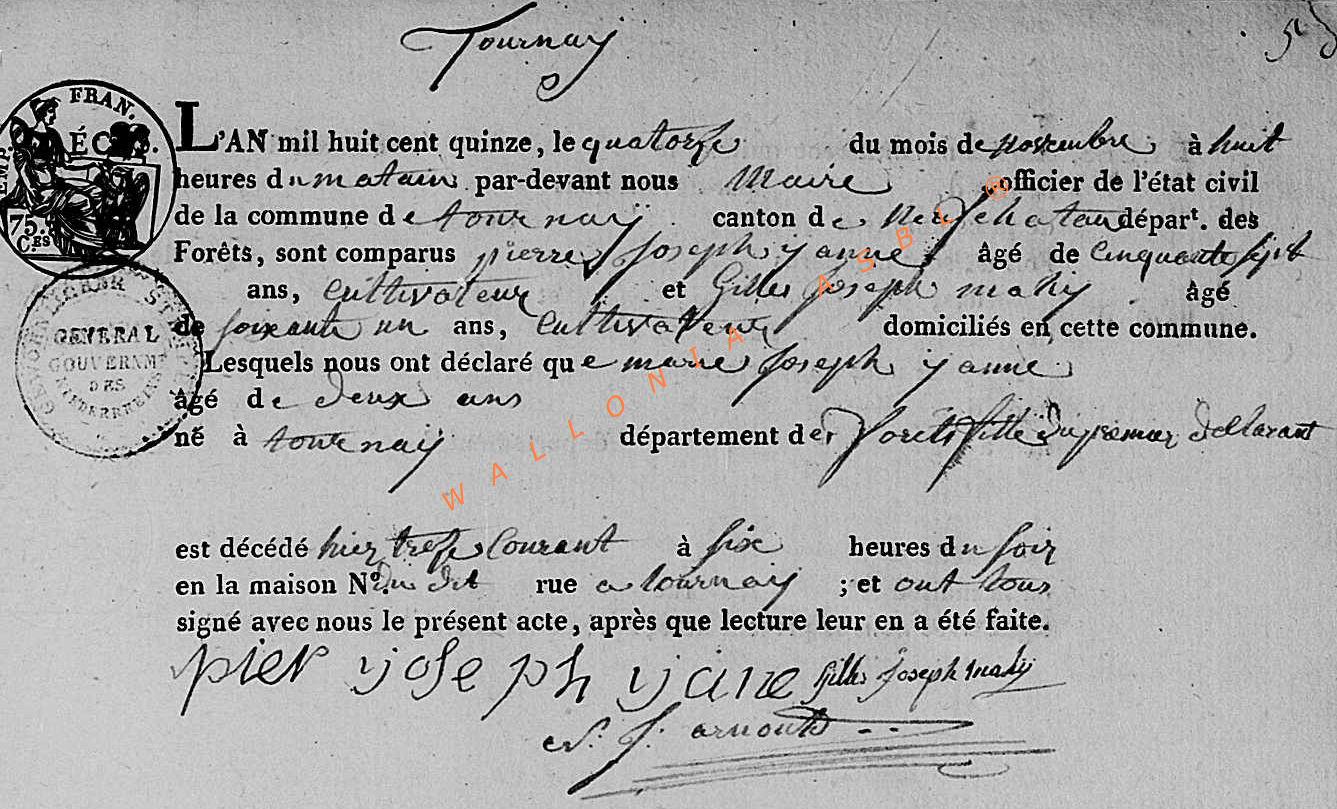 Tournay
58
FRAN.
ÉC. S.
75.
C.ES
L'AN mil huit cent quinze, le quatorze du mois de novembre à huit
heures du matain par-devant nous Maire , officier de l'état civil
de la commune de tournaÿ canton de Neufchatau départ. des
Forêts, sont comparus pierre Joseph yanne âgé de Cinquante sept
ans, Cultivateur et Gilles Joseph mahy âgé
de soixante un ans, Cultivateur domiciliés en cette commune.
GENERAL
GOUVERNMT
DES
NIEDERRHEINS
Lesquels nous ont déclaré que marie Joseph yanne
âgé de deux ans
né à tournaÿ département des forêts fille du premier dellarant
est décédé hier treze Courant à six heures du soir
en la maison No. du dit rue a tournaÿ ; et ont tous
signé avec nous le présent acte, après que lecture leur en a été faite.
pier yoseph yane Gilles Joseph mahy
arnould
WALLONIA ASBL ®